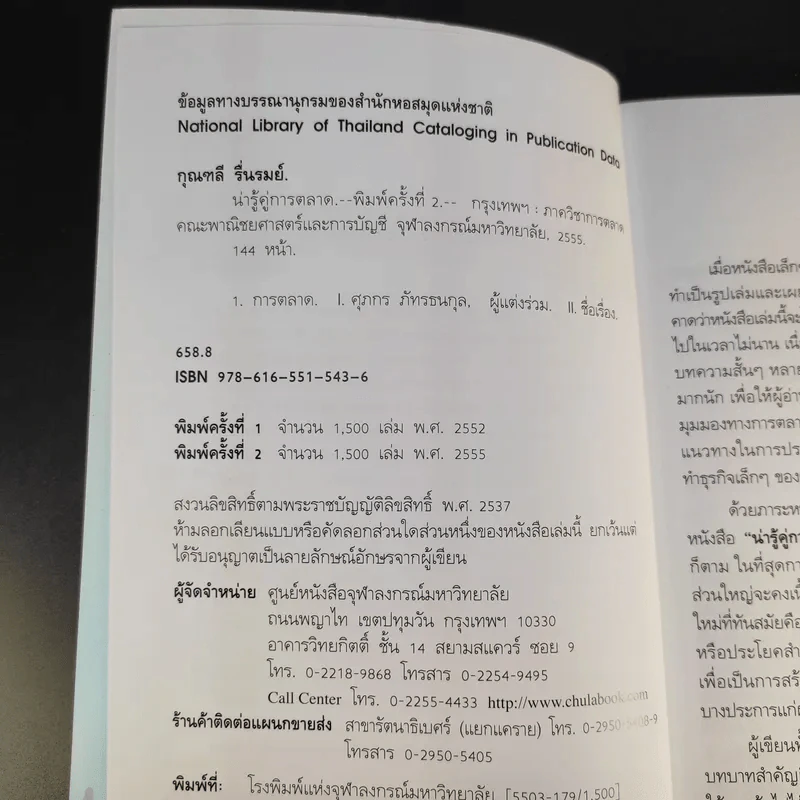 ข้อมูลทางบรรณานุกรมของสำนักหอสมุดแห่งชาติ
National Library of Thailand Cataloging in Publication Data
กุณฑลี รื่นรมย์.
น่ารู้คู่การตลาด.--พิมพ์ครั้งที่ 2.-- กรุงเทพฯ : ภาควิชาการตลาด
คณะพาณิชยศาสตร์และการบัญชี จุฬาลงกรณ์มหาวิทยาลัย, 2555.
144 หน้า.
1. การตลาด. I. ศุภกร ภัทรธนกุล, ผู้แต่งร่วม. II. ชื่อเรื่อง.
658.8
ISBN 978-616-551-543-6
พิมพ์ครั้งที่ 1 จำนวน 1,500 เล่ม พ.ศ. 2552
พิมพ์ครั้งที่ 2 จำนวน 1,500 เล่ม พ.ศ. 2555
สงวนลิขสิทธิ์ตามพระราชบัญญัติลิขสิทธิ์ พ.ศ. 2537
ห้ามลอกเลียนแบบหรือคัดลอกส่วนใดส่วนหนึ่งของหนังสือเล่มนี้ ยกเว้นแต่
ได้รับอนุญาตเป็นลายลักษณ์อักษรจากผู้เขียน
ผู้จัดจำหน่าย ศูนย์หนังสือจุฬาลงกรณ์มหาวิทยาลัย
ถนนพญาไท เขตปทุมวัน กรุงเทพฯ 10330
อาคารวิทยกิตติ์ ชั้น 14 สยามสแควร์ ซอย 9
โทร. 0-2218-9868 โทรสาร 0-2254-9495
Call Center โทร. 0-2255-4433 http://www.chulabook.com
ร้านค้าติดต่อแผนกขายส่ง สาขารัตนาธิเบศร์ (แยกแคราย) โทร. 0-2950-5408-9
โทรสาร 0-2950-5405
พิมพ์ที่: โรงพิมพ์แห่งจุฬาลงกรณ์มหาวิทยาลัย [5503-179/1,500]
เมื่อหนังสือเล็กๆ
ทำเป็นรูปเล่มและเผย
คาดว่าหนังสือเล่มนี้จะ
ไปในเวลาไม่นาน เนื่
บทความสั้นๆ หลาย
มากนัก เพื่อให้ผู้อ่า
มุมมองทางการตลา
แนวทางในการประ
ทำธุรกิจเล็กๆ ของ
ด้วยภาระห
หนังสือ "น่ารู้คู่กา
ก็ตาม ในที่สุดกา
ส่วนใหญ่จะคงเนื้
ใหม่ที่ทันสมัยคือ
หรือประโยคสำ
เพื่อเป็นการสร้
บางประการแก่
ผู้เขียนทั้
บทบาทสำคัญใ